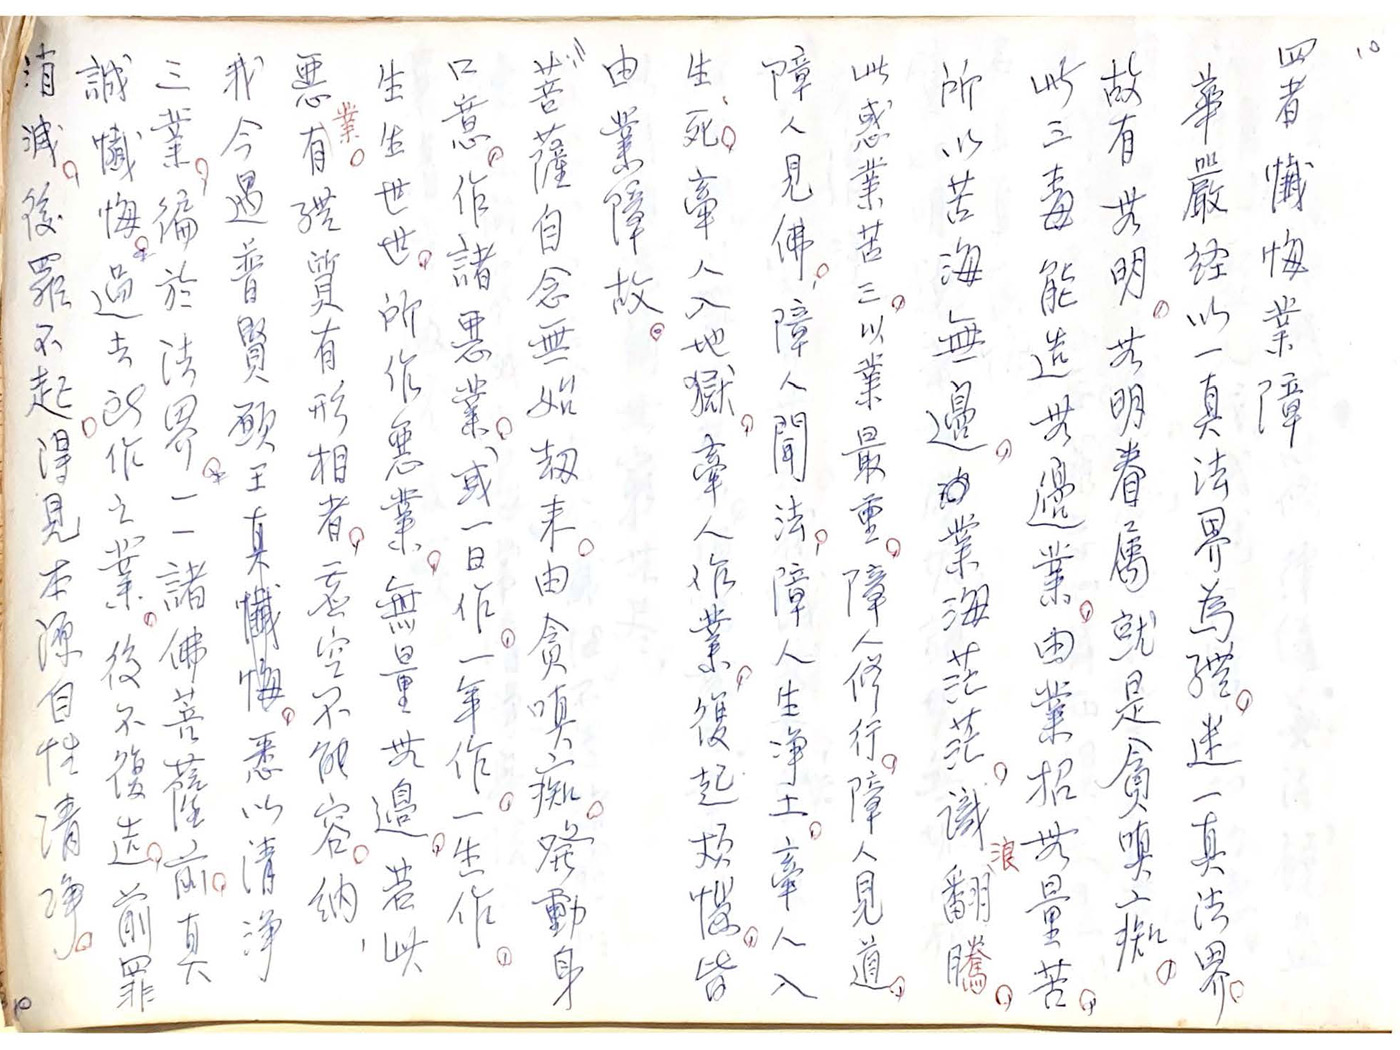 10
四者懺悔業障
華嚴经以一真法界為體。迷一真法界。
故有无明。无明眷屬就是貪嗔癡。
此三毒能造无邊業。由業招无量苦。
所以苦海無邊。業海茫茫。識浪翻騰。
此惑業苦三。以業最重。障人修行。障人見道。
障人見佛。障人聞法。障人生净土。牽人入
生死。牽人入地獄。牽人作業。復起煩惱。皆
由業障故。
菩薩自念無始劫来。由貪嗔癡。發動身
口意。作諸惡業。或一日作。一年作。一生作。
生生世世。所作惡業。無量无邊。若此
惡業。有體質有形相者。虚空不能容。納,
我今遇普賢願王真懺悔。悉以清净
三業。徧於法界。一一諸佛菩薩前。真
誠懺悔。過去所作之業。後不復造。前罪
消滅。後罪不起。得見本源自性清净。
10